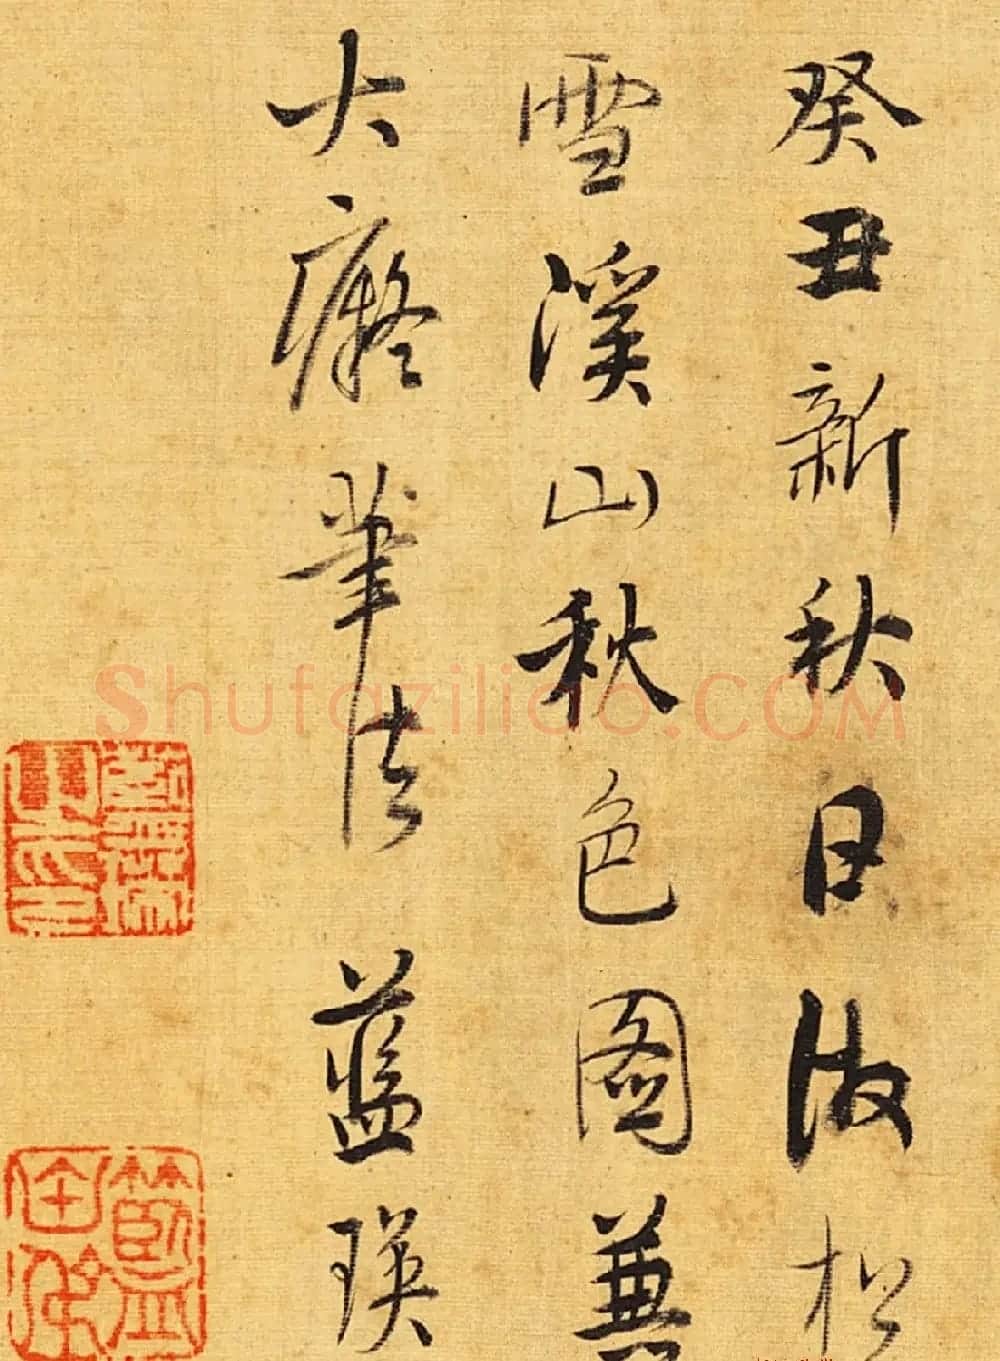 癸丑新秋日倣松
雪溪山秋色圖兼
大癡筆法 藍瑛
Shufaziliao.COM